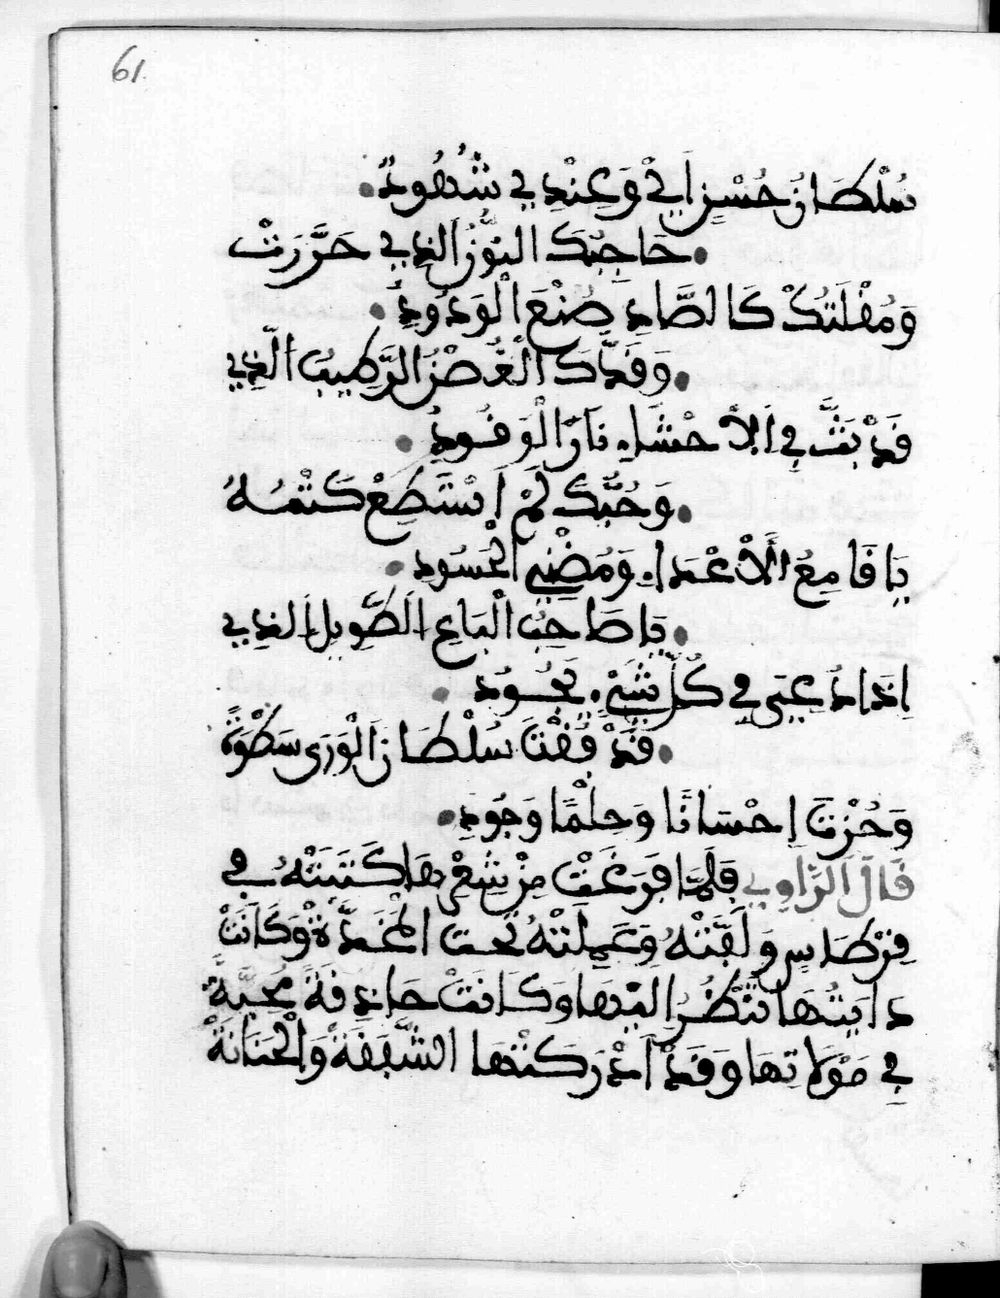 61
سُلْطَانُ حُسْنٍ أَتَى وَعِنْدِي شُهُودُ
حَاجِبُكَ النُّونُ الَّذِي حَرَّرَتْ
وَمُقْلَتُكْ كَالصَّادِ صُنْعَ الْوَدُودِ
وَقَدُّكَ الْغُصْنُ الرَّطِيبُ الَّذِي
قَدْ بَثَّ فِي الْأَحْشَاءِ نَارَ الْوَقُودِ
وَحُبُّكَ لَمْ أَسْتَطِعْ كَتْمَهُ
يَا قَامِعَ الْأَعْدَاءِ وَمُضْنِي الْحَسُودِ
يَا صَاحِبَ الْبَاعِ الطَّوِيلِ الَّذِي
فِي كُلِّ شَيْءٍ يَجُودُ
قَدْ فُقْتَ سُلْطَانَ الْوَرَى سَطْوَةً
وَحُزْتَ إِحْسَانًا وَحِلْمًا وَجُودِ
قَالَ الرَّاوِي فَلَمَّا فَرَغَتْ مِنْ شِعْرِهَا كَتَبَتْهُ فِي
قِرْطَاسٍ وَلَفَّتْهُ وَعَمِلَتْهُ تَحْتَ الْمَخَدَّةْ وَكَانَتْ
دَايَتُهَا تَنْظُرُ إِلَيْهَا وَكَانَتْ حَاذِقَةً مُحِبَّةً
فِي مَوْلَاتِهَا وَقَدْ أَدْرَكَتْهَا الشَّفَقَةْ وَالْحَنَانَةْ